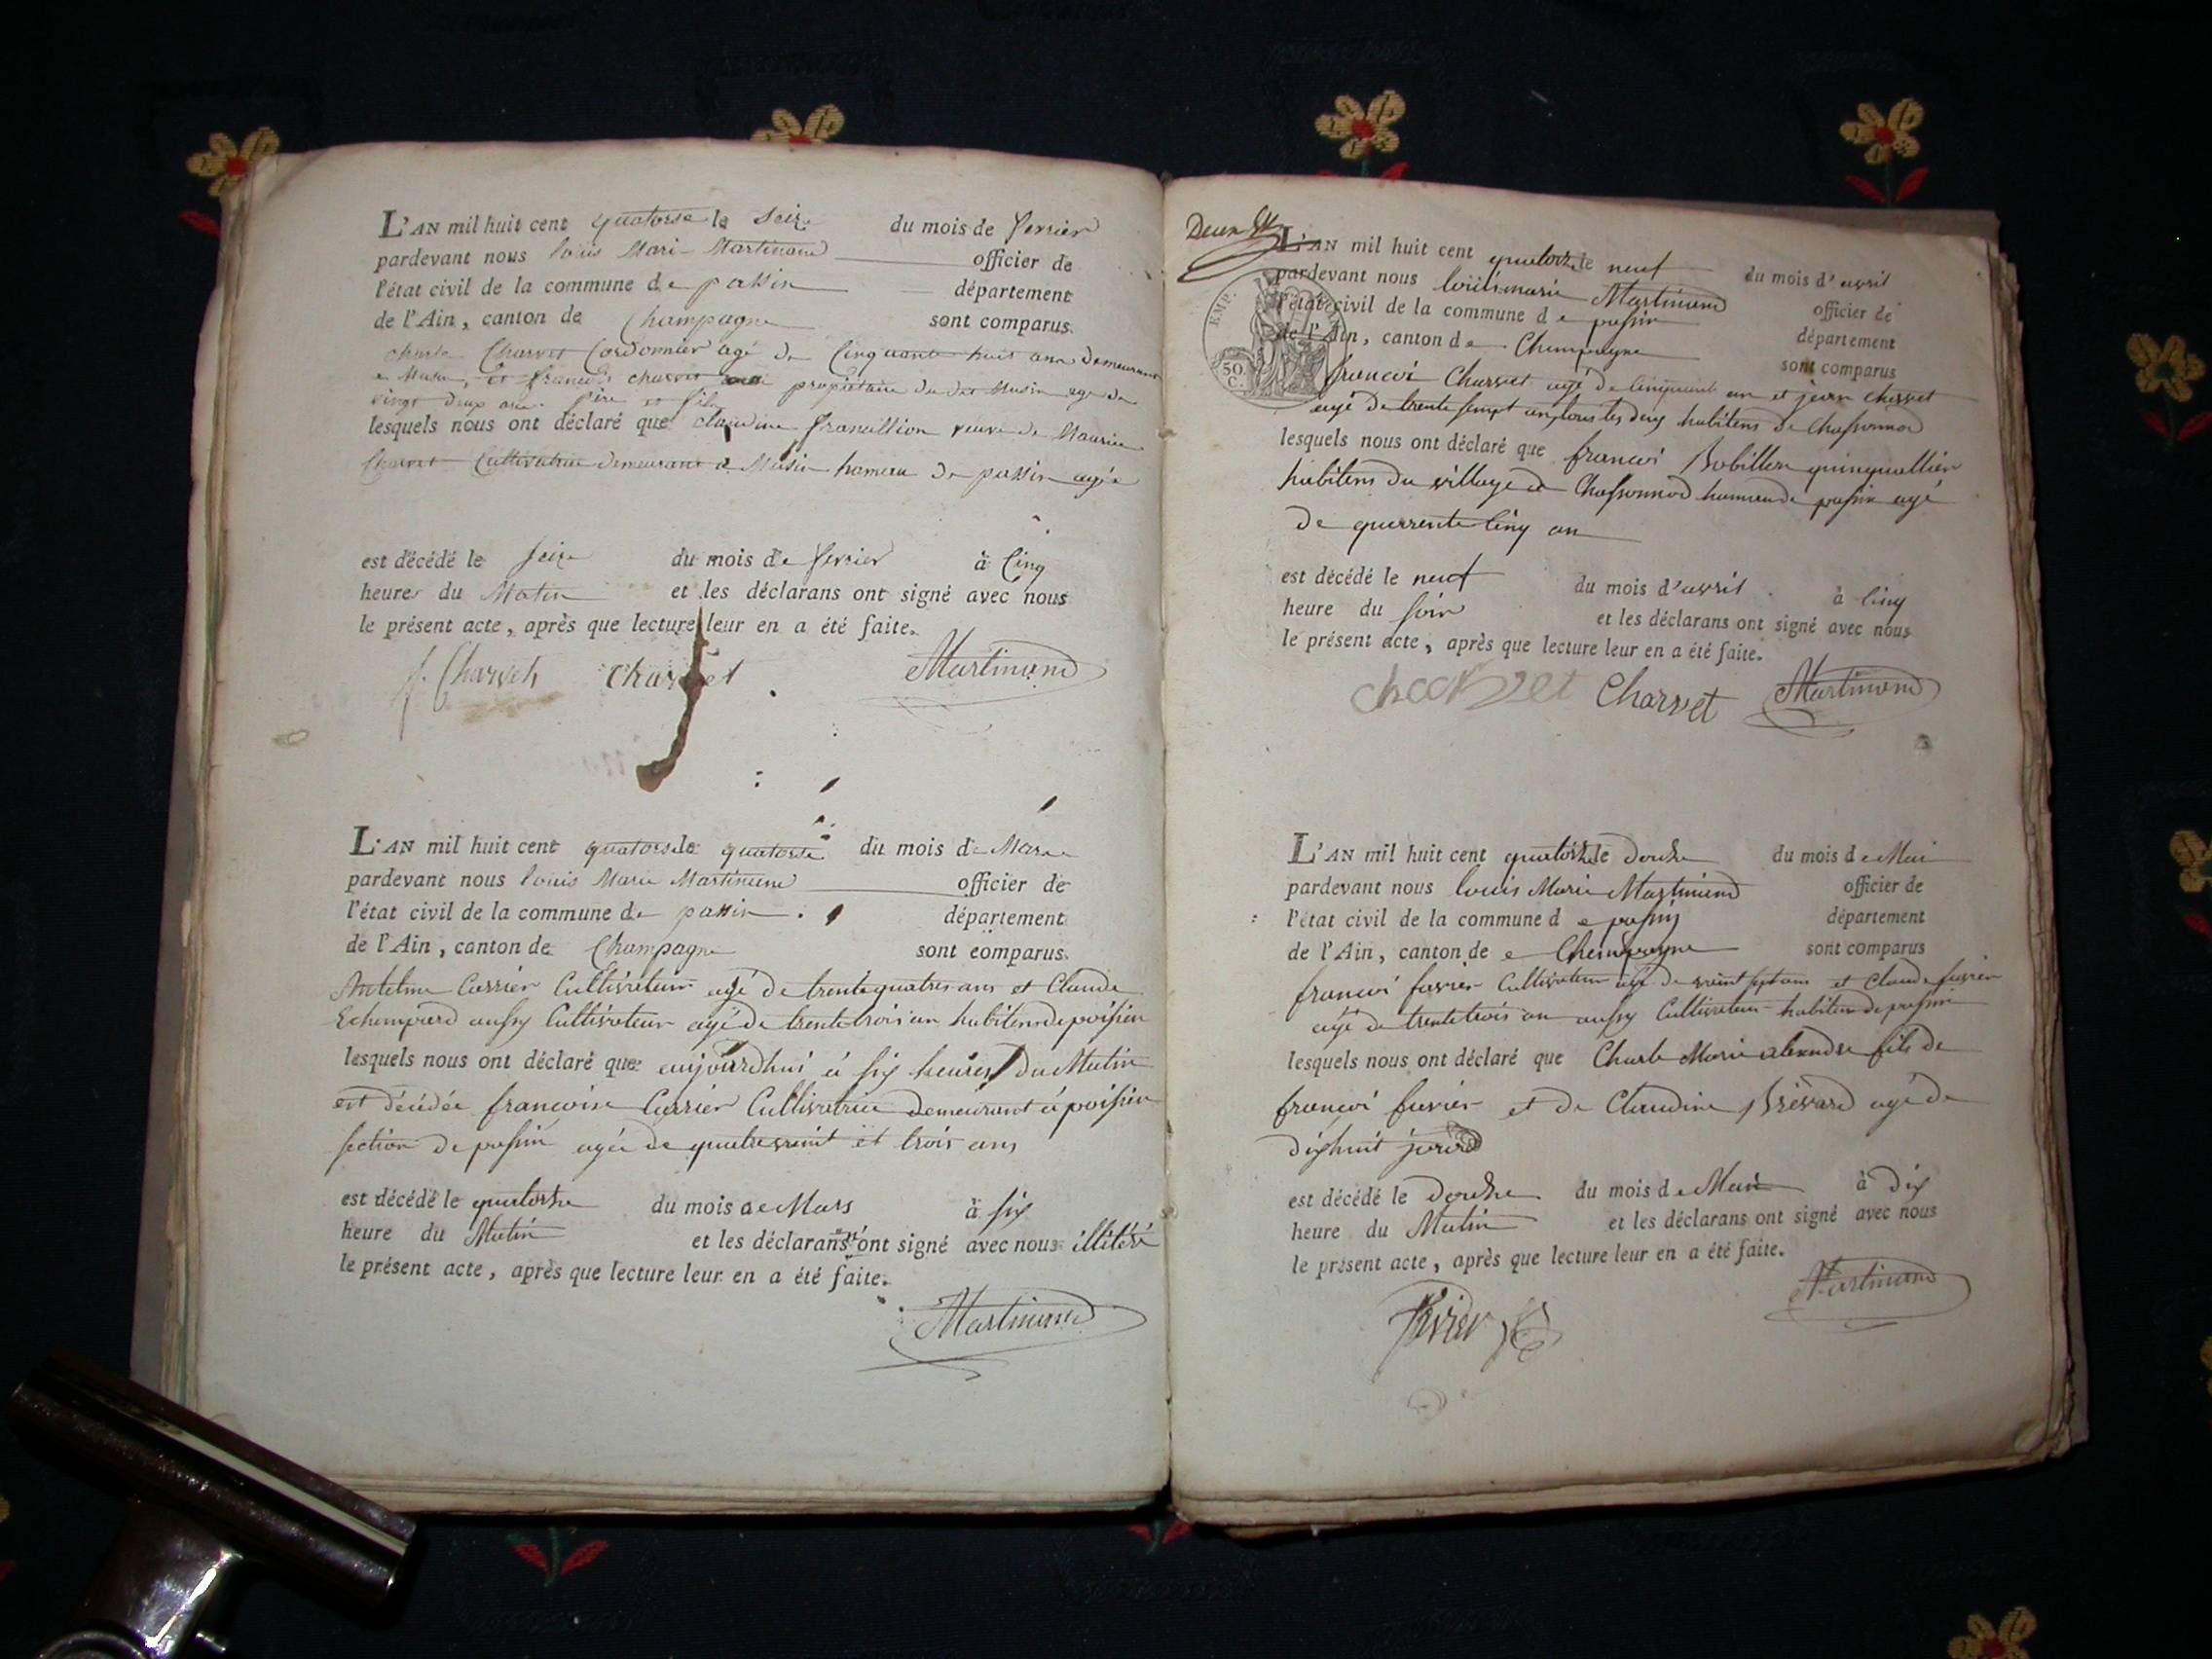 L'AN mil huit cent quatorse le Seize du mois de ferrier
pardevant nous louis Mari Martinand officier de
l'état civil de la commune de passin département
de l'Ain, canton de Champagne sont comparus
charle Charvet Cordonnier agé de Cinquante huit ans demeurant
a Musin, et francois charvet propriétaire du dit Musin age de
vingt deux ans. père et fils
lesquels nous ont déclaré que claudine francillion veuve de Maurice
Charvet Cultivatrice demeurant a Musin hameau de passin agée
est décédé le Seize du mois de ferrier à Cinq
heures du Matin et les déclarans ont signé avec nous
le présent acte, après que lecture leur en a été faite.
f. Charvet Charvet Martinand
L'AN mil huit cent quatorse le quatorse du mois de Mars
pardevant nous louis Marie Martinand officier de
l'état civil de la commune de passin département
de l'Ain, canton de Champagne sont comparus
Antelme Carrier Cultivateur agé de trente quatres ans et Claude
Echemprerd aussy Cultivateur agé de trente trois an habitens de poisieu
lesquels nous ont déclaré que aujourdhui à six heures du Matin
est décédée francoise Carrier Cultivatrice demeurant à poisieu
section de passin agée de quatrevint et trois ans
est décédé le quatorse du mois de Mars à six
heure du Matin et les déclarans n'ont signé avec nous illitéré
le présent acte, après que lecture leur en a été faite.
Martinand
Deux
L'AN mil huit cent quatorze le neuf du mois d'avril
pardevant nous louis marie Martinand officier de
l'état civil de la commune de passin département
de l'Ain, canton de Champagne sont comparus
EMP.
50
C.
francoi Charvet agé de Cinquante un et jean charvet
agé de trente sempt an tous les deux habitens de Chassonnod
lesquels nous ont déclaré que francoi Bobillon quinquallier
habitens du village de Chassonnod hameau de passin agé
de quarrente Cinq an
est décédé le neuf du mois d'avril à Cinq
heure du soir et les déclarans ont signé avec nous
le présent acte, après que lecture leur en a été faite.
charvet Charvet Martinand
L'AN mil huit cent quatorze le douse du mois de Mai
pardevant nous louis Marie Martinand officier de
l'état civil de la commune de passin département
de l'Ain, canton de Champagne sont comparus
francoi favrier Cultivateur agé de vaint sept ans et Claude favrier
agé de trente trois an aussy Cultivateur habitens de passin
lesquels nous ont déclaré que Charle Marie alexandre fils de
francoi favrier et de Claudine Brévard agé de
dixhuit jours
est décédé le douse du mois de Mai à dix
heure du Matin et les déclarans ont signé avec nous
le présent acte, après que lecture leur en a été faite.
favier Martinand